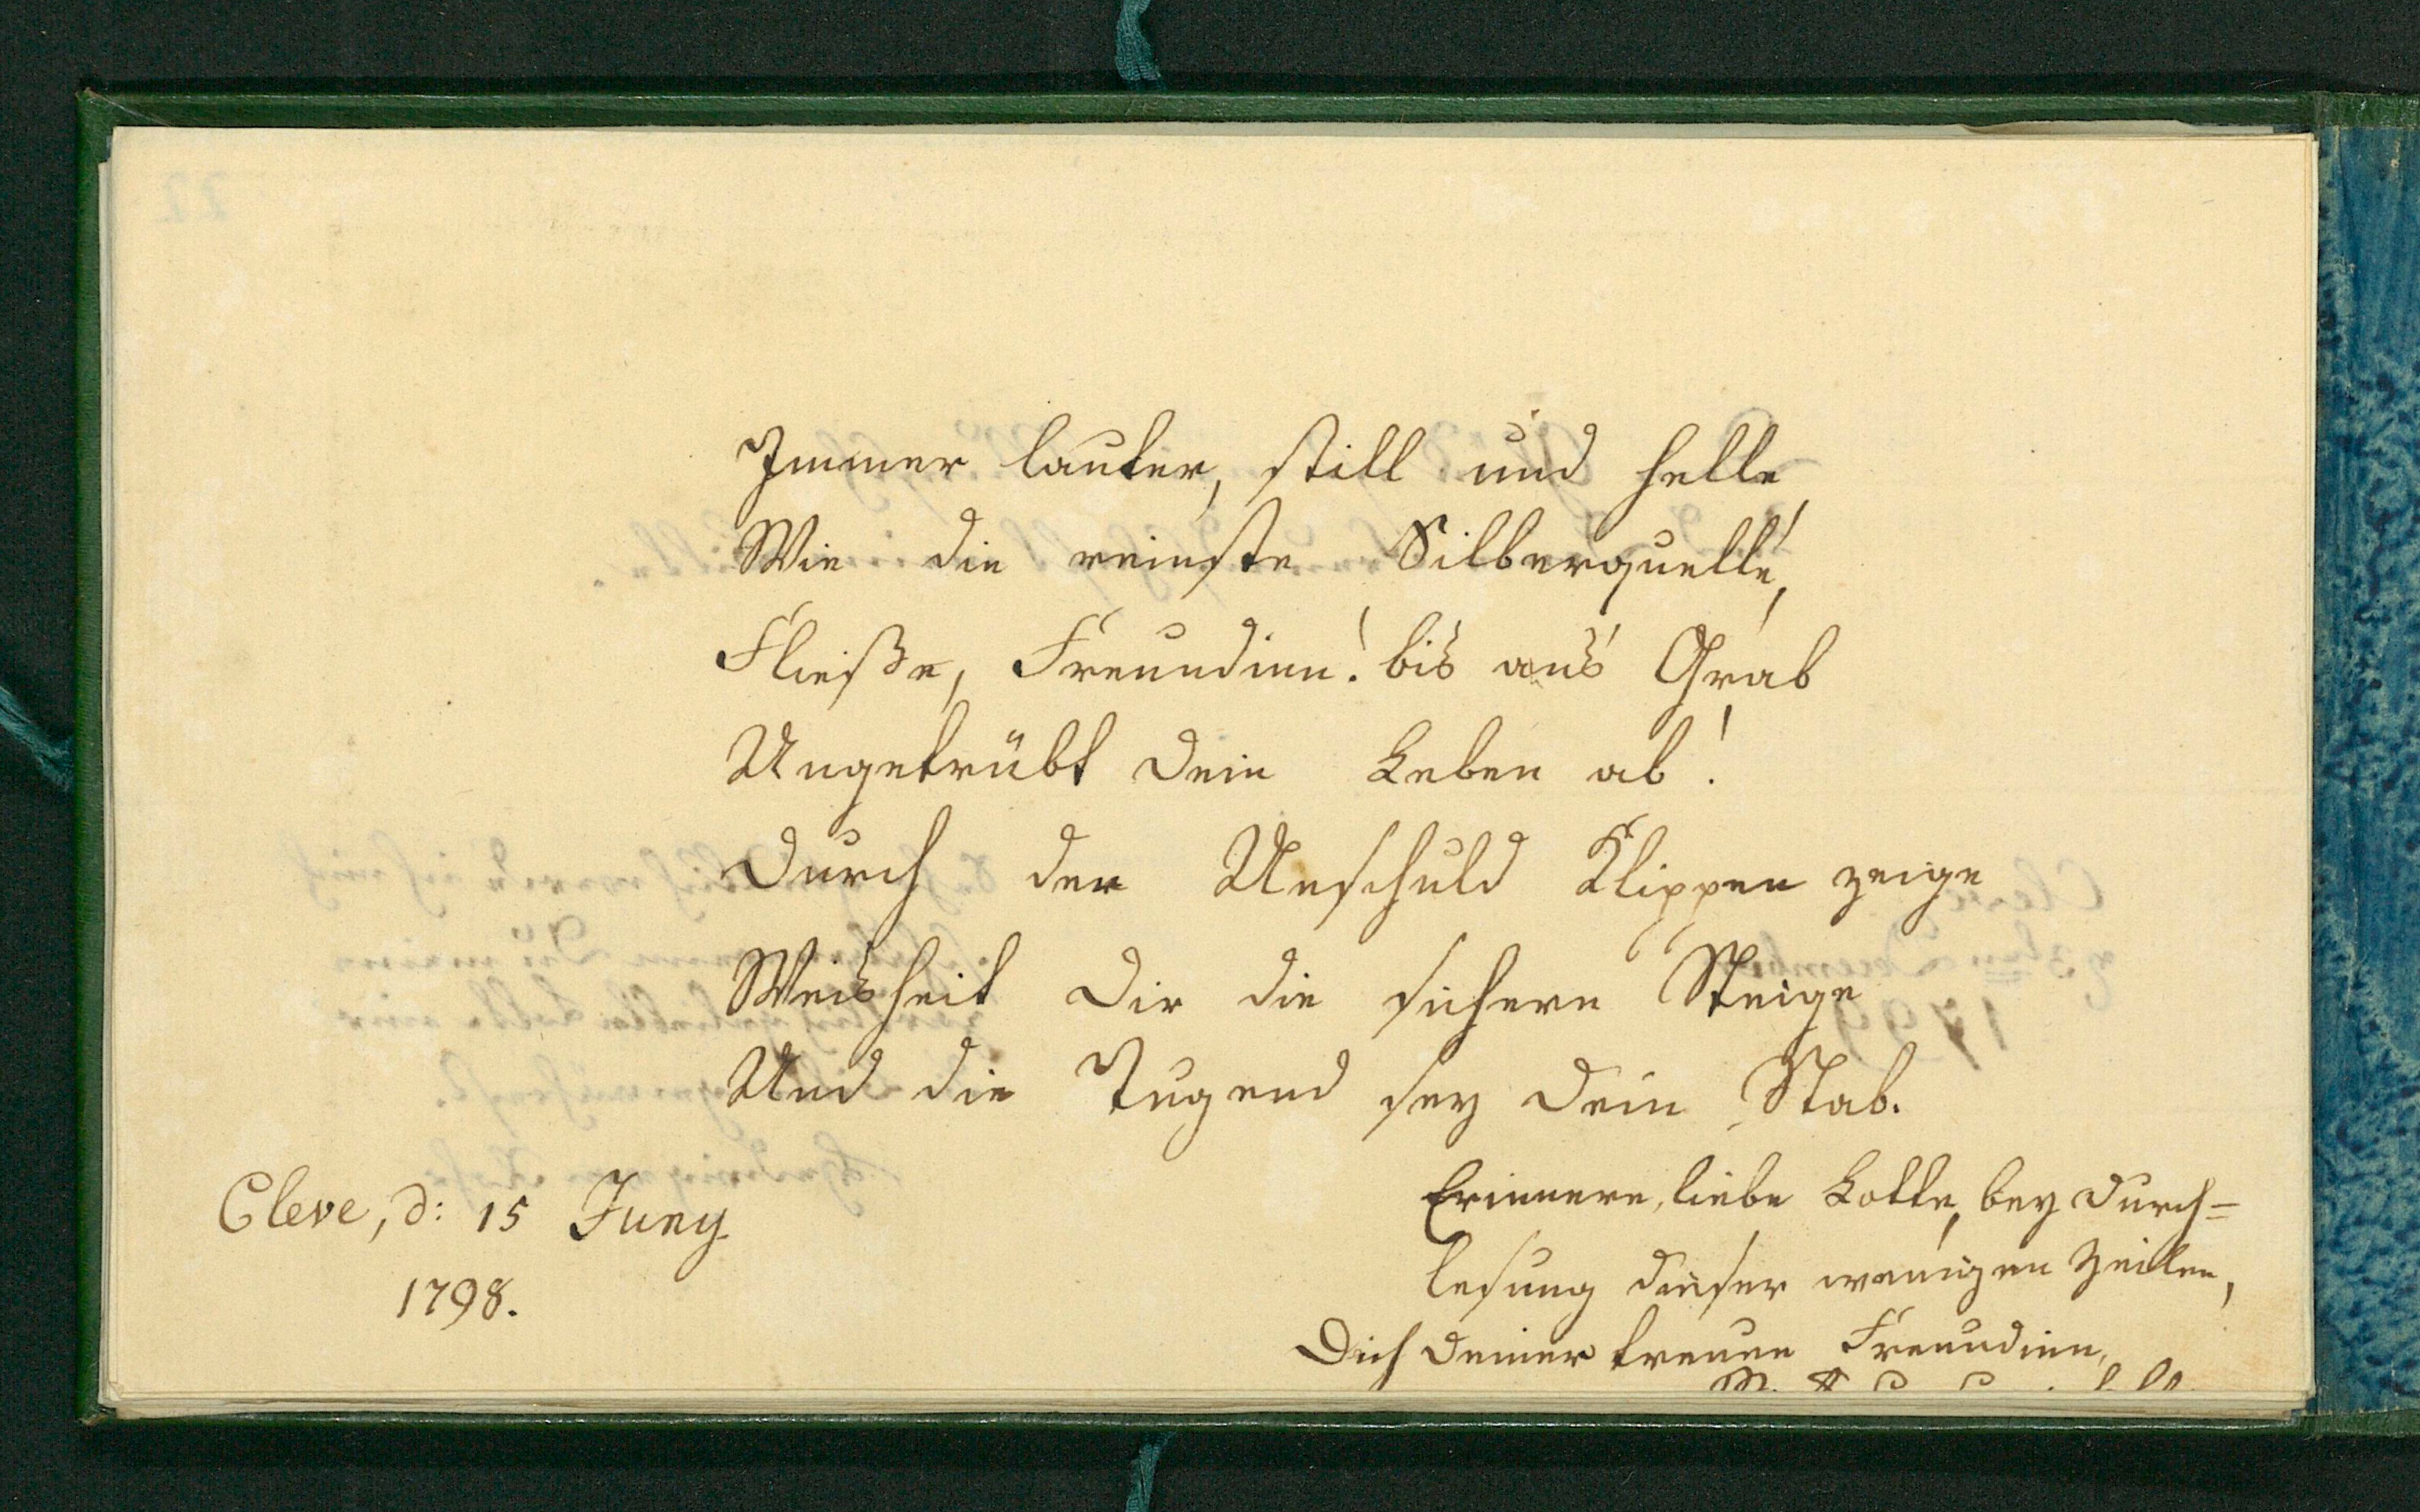 Immer lauter, still und helle,
Wie die reinste Silberquelle,
Fließe, Freundinn! bis ans Grab
Ungetrübt Dein Leben ab!
Durch der Unschuld Klippen zeige
Weisheit Dir die sichern Steige
Und die Tugend sey Dein Stab.
Cleve, d: 15 Juny
1798.
Erinnere, liebe Lotte, bey Durch=
lesung dieser wenigen Zeilen,
Dich Deiner treuen Freundinn,